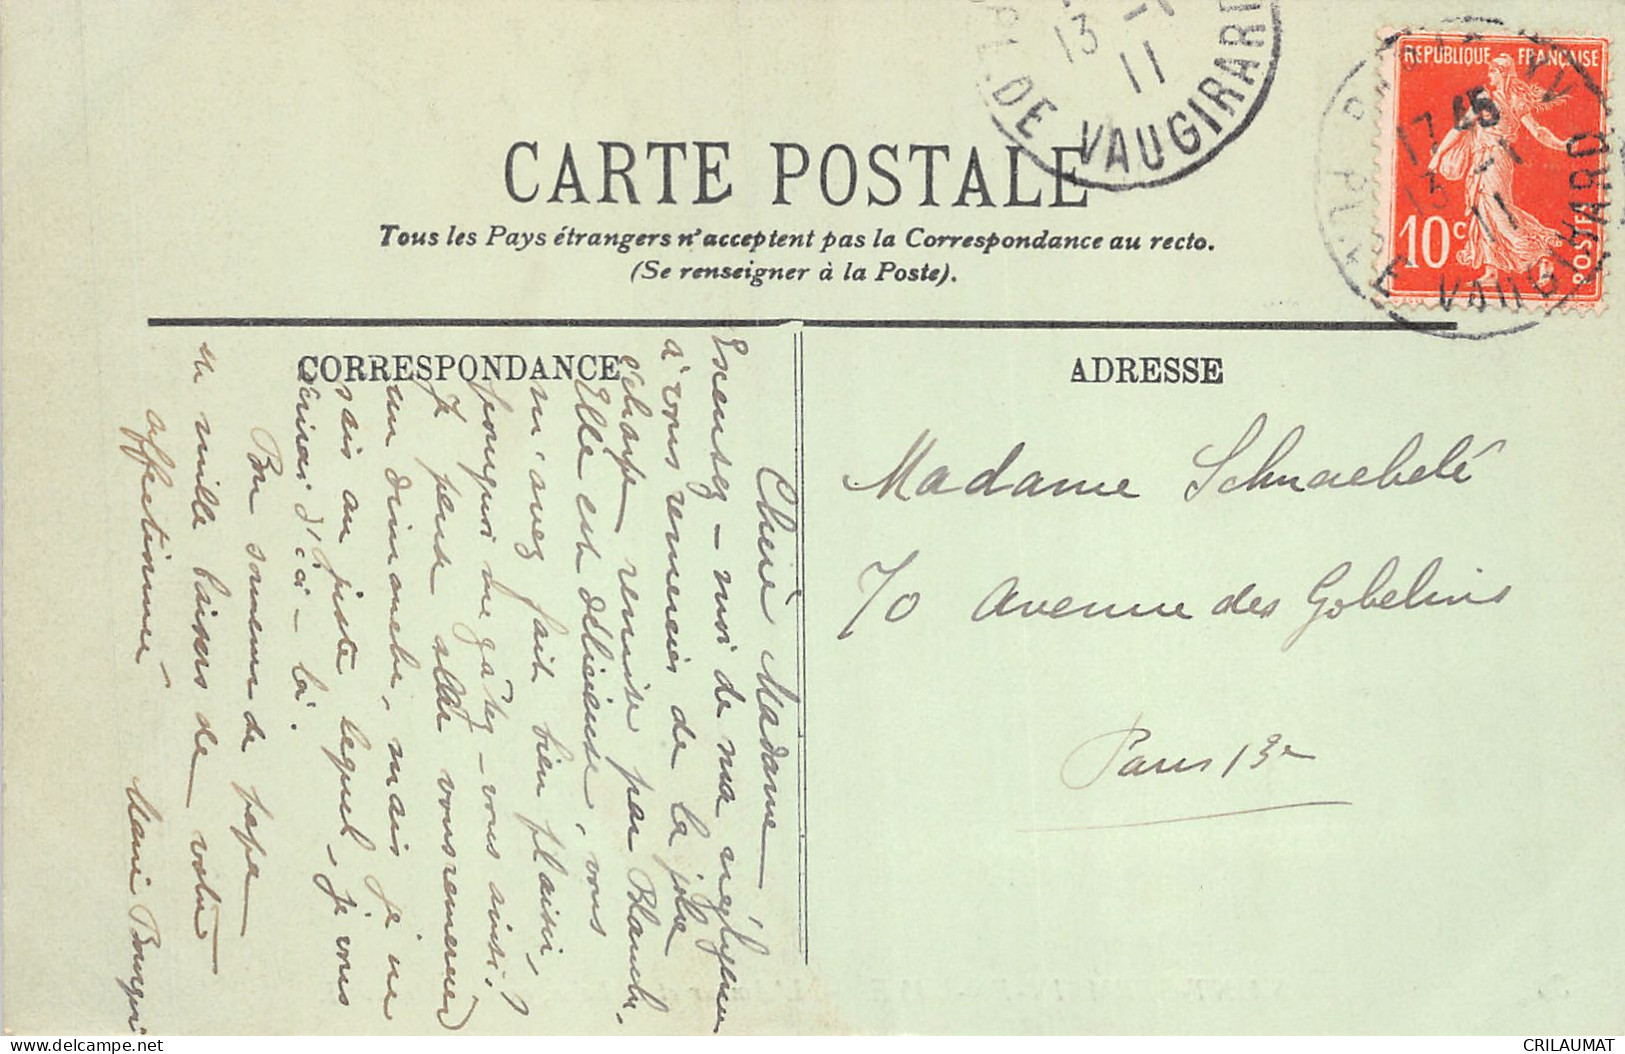 CARTE POSTALE
Tous les Pays étrangers n'acceptent pas la Correspondance au recto.
(Se renseigner à la Poste).
PL. DE VAUGIRARD
13 -1
11
REPUBLIQUE FRANÇAISE
10c
POSTES
17 45
13 -1
11
VAUGIRARD
CORRESPONDANCE
ADRESSE
Chère Madame
Excusez-moi de ma négligence
à vous remercier de la jolie
écharpe remise par Blanche.
Elle est délicieuse, vous
m'avez fait bien plaisir,
pourquoi me gâtez-vous ainsi?
Je pense aller vous remercier
un dimanche, mais je ne
sais au juste lequel, je vous
écrirai d'ici-là.
Bon souvenir de papa
et mille baisers de votre
affectionnée
Madame Schnaebelé
70 avenue des Gobelins
Paris 13e
CRILAUMAT